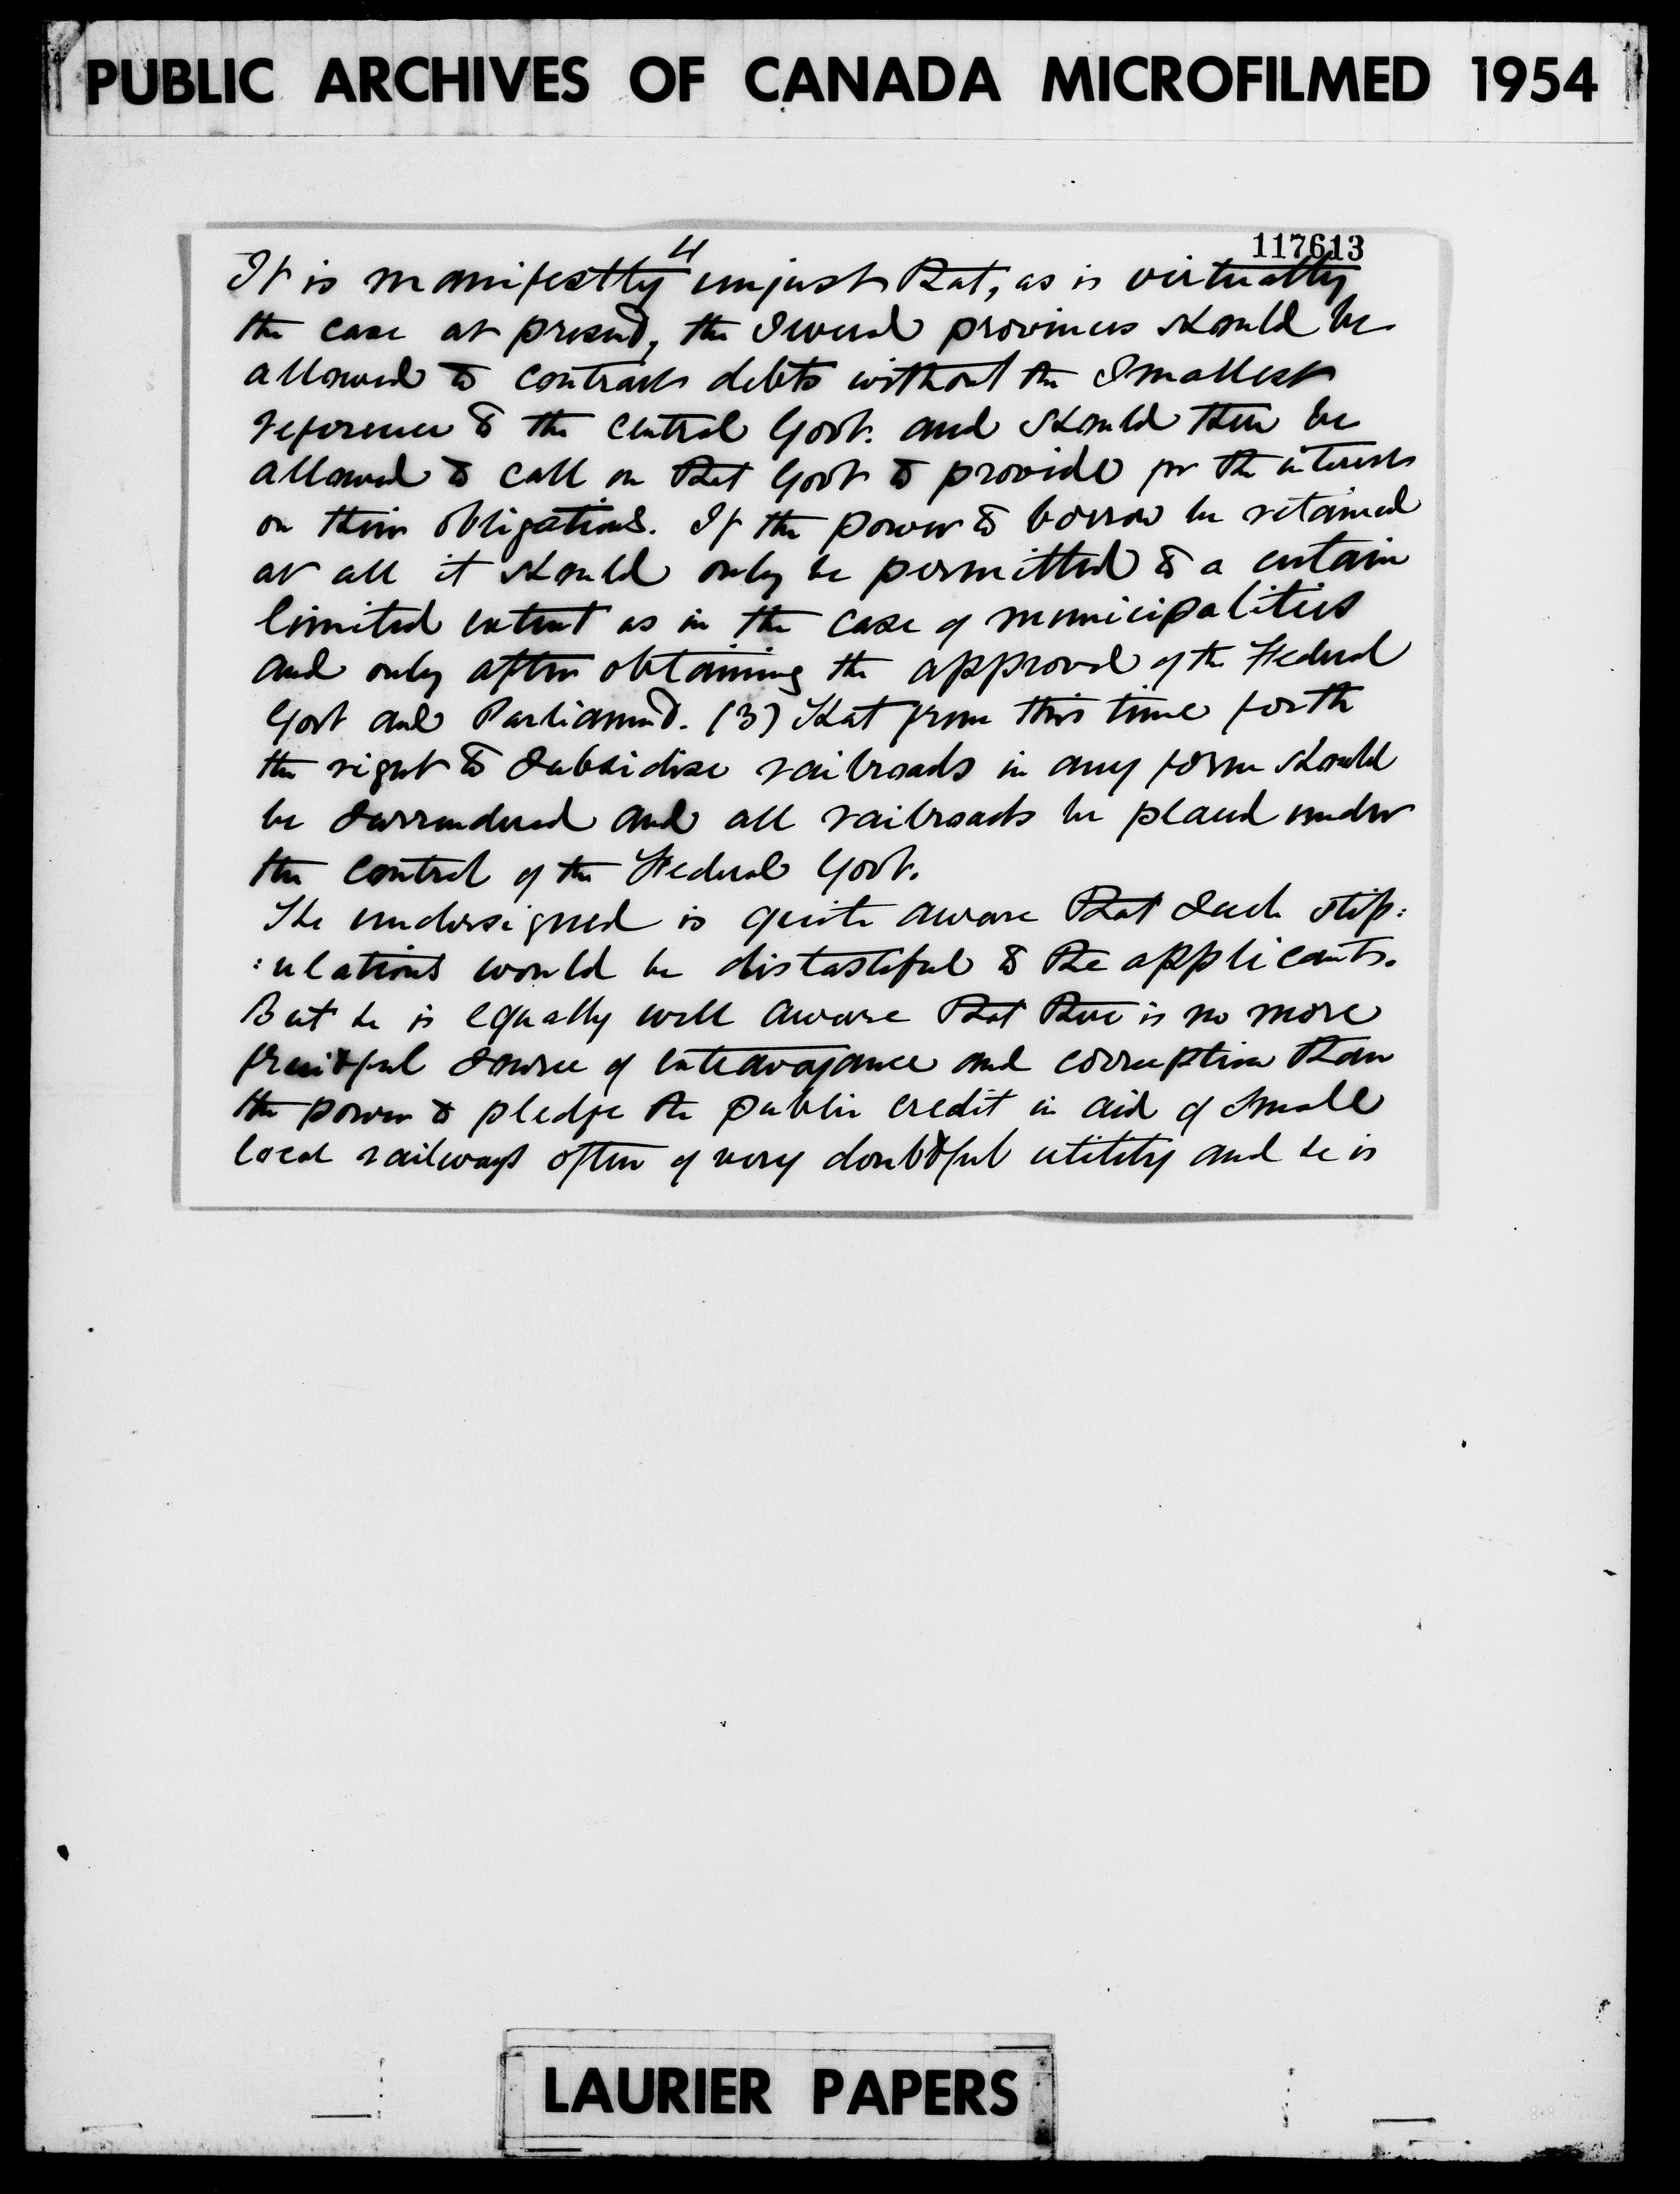 PUBLIC ARCHIVES OF CANADA MICROFILMED 1954
117613
4
It is manifestly unjust that, as is virtually
the case at present, the several provinces should be
allowed to contract debts without the smallest
reference to the central Govt. and should then be
allowed to call on that Govt to provide for the interest
on their obligations. If the power to borrow be retained
at all it should only be permitted to a certain
limited extent as in the case of municipalities
and only after obtaining the approval of the Federal
Govt and Parliament. (3) That from this time forth
the right to subsidise railroads in any form should
be surrendered and all railroads be placed under
the control of the Federal Govt.
The undersigned is quite aware that such stip:
:ulations would be distasteful to the applicants.
But he is equally well aware that there is no more
fruitful source of extravagance and corruption than
the power to pledge the public credit in aid of small
local railways often of very doubtful utility and he is
LAURIER PAPERS